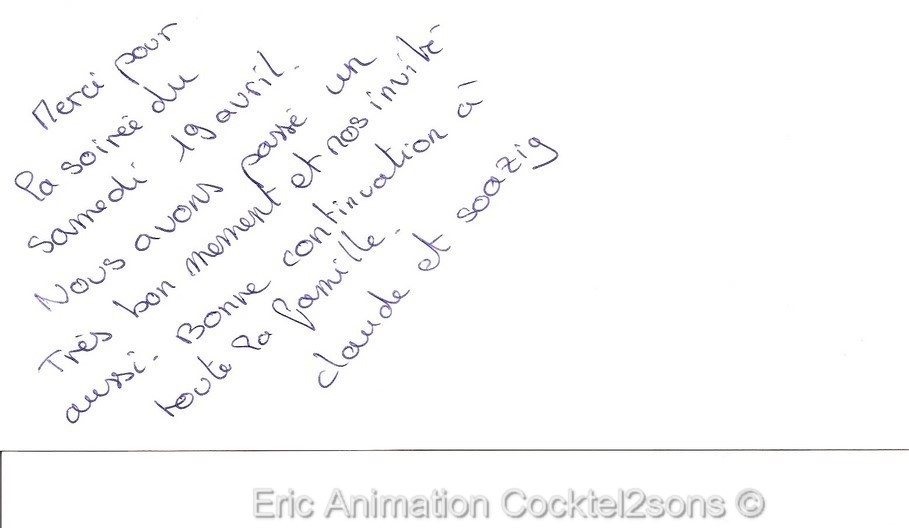 Merci pour
la soirée du
samedi 19 avril.
Nous avons passé un
Très bon moment et nos invité
aussi. Bonne continuation à
toute la famille.
claude et soazig
Eric Animation Cocktel2sons ©